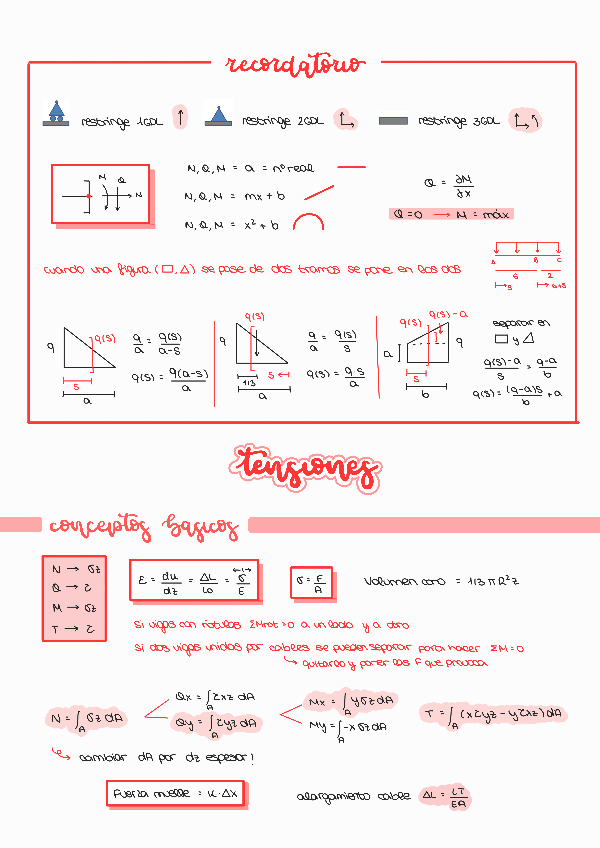 recordatorio
restringe 1GDL
restringe 2GDL
restringe 3GDL
N M Q N
N, Q, M = a = nº real
N, Q, M = mx + b
N, Q, M = x² + b
Q = ∂M/∂x
Q=0 → M = máx
cuando una figura (□, △) se pase de dos tramos se pone en los dos
A B C
6 2
s 6+s
q q(s) s a
q/a = q(s)/a-s
q(s) = q(a-s)/a
q 1/3 s a
q/a = q(s)/s
q(s) = q·s/a
q(s) q(s)-a
a q s b
separar en
□ y △
q(s)-a/s = q-a/b
q(s) = (q-a)s/b + a
tensiones
conceptos básicos
N → σz
Q → τ
M → σz
T → τ
ε = du/dz = ΔL/L0 = σ/E
σ = F/A
Volumen cono = 1/3 π R² z
si vigas con rótulas ΣMrot = 0 a un lado y a otro
si dos vigas unidas por cables se pueden separar para hacer ΣM=0
↳ quitarlo y poner las F que provoca
N = ∫A σz dA
Qx = ∫A τxz dA
Qy = ∫A τyz dA
Mx = ∫A yσz dA
My = ∫A -x σz dA
T = ∫A (xτyz - yτxz) dA
↳ cambiar dA por dz espesor!
Fuerza muelle = K · Δx
alargamiento cable ΔL = LT/EA